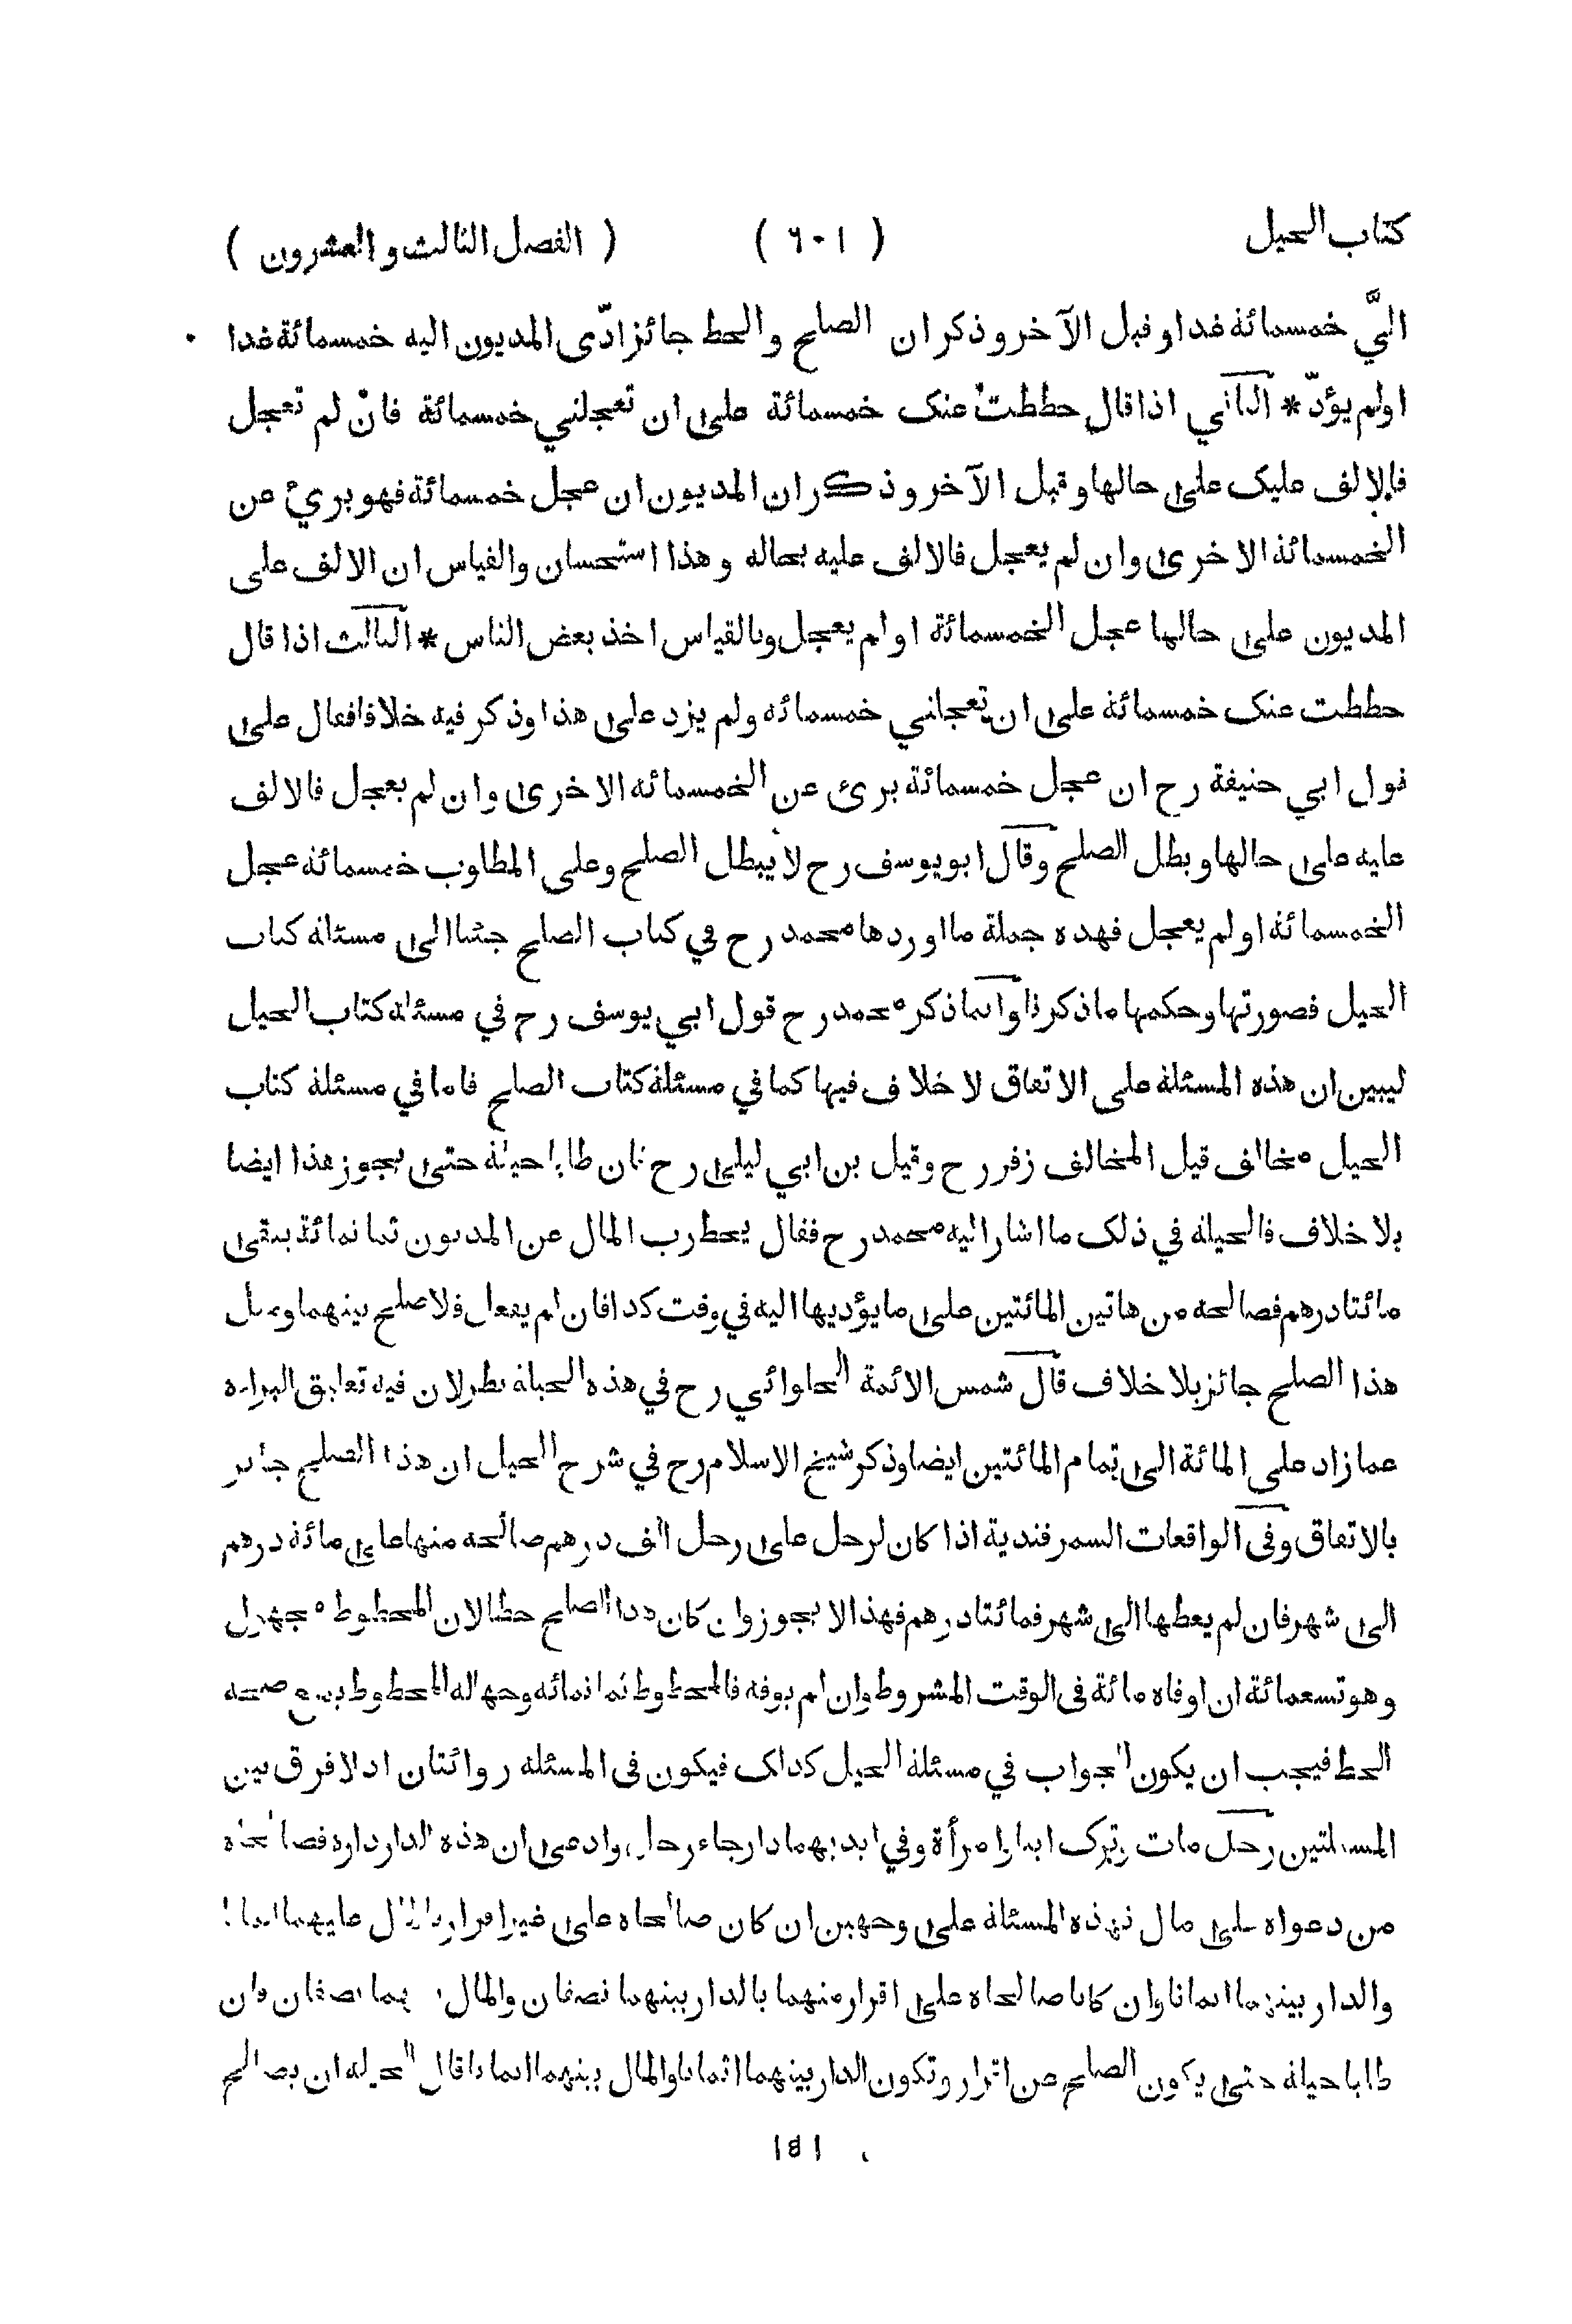 كتاب الحيل ( ٦٠١ ) ( الفصل الثالث والعشرون )
اليَّ خمسمائة غدا وقبل الآخر وذكر ان الصلح والحط جائز ادّى المديون اليه خمسمائة غدا
اولم يؤدّ * الثاني اذا قال حططتُ عنك خمسمائة على ان تعجلني خمسمائة فانْ لم تعجل
فالالف عليك على حالها وقبل الآخر وذكر ان المديون ان عجل خمسمائة فهو بريئ عن
الخمسمائة الاخرى وان لم يعجل فالالف عليه بحاله وهذا استحسان والقياس ان الالف على
المديون على حالها عجل الخمسمائة اولم يعجل وبالقياس اخذ بعض الناس * الثالث اذا قال
حططت عنك خمسمائة على ان تعجلني خمسمائة ولم يزد على هذا وذكر فيه خلافا فقال على
قول ابي حنيفة رح ان عجل خمسمائة برئ عن الخمسمائة الاخرى وان لم يعجل فالالف
عليه على حالها وبطل الصلح وقال ابو يوسف رح لا يبطل الصلح وعلى المطلوب خمسمائة عجل
الخمسمائة اولم يعجل فهذه جملة ما اوردها محمد رح في كتاب الصلح جئنا الى مسئلة كتاب
الحيل فصورتها وحكمها ما ذكرنا وانما ذكر محمد رح قول ابي يوسف رح في مسئلة كتاب الحيل
ليبين ان هذه المسئلة على الاتفاق لا خلاف فيها كما في مسئلة كتاب الصلح فاما في مسئلة كتاب
الحيل مخالف قيل المخالف زفر رح وقيل بن ابي ليلى رح فان طلبا حيلة حتى يجوز هذا ايضا
بلا خلاف فالحيلة في ذلك ما اشار اليه محمد رح فقال يحط رب المال عن المديون ثمانمائة يبقى
مائتا درهم فصالحه من هاتين المائتين على ما يؤديها اليه في وقت كذا فان لم يفعل فلا صلح بينهما ومثل
هذا الصلح جائز بلا خلاف قال شمس الائمة الحلوائي رح في هذه الحيلة نظر لان فيه تعليق البراءة
عما زاد على المائة الى تمام المائتين ايضا وذكر شيخ الاسلام رح في شرح الحيل ان هذا الصلح جائز
بالاتفاق وفى الواقعات السمرقندية اذا كان لرجل على رجل الف درهم صالحه منها على مائة درهم
الى شهر فان لم يعطها الى شهر فمائتا درهم فهذا لا يجوز وان كان هذا الصلح حطا لان المحطوط مجهول
وهو تسعمائة ان اوفاه مائة فى الوقت المشروط وان لم يوفه فالمحطوط ثمانمائة وجهالة المحطوط يمنع صحة
الحط فيجب ان يكون الجواب في مسئلة الحيل كذلك فيكون فى المسئلة روائتان اذ لا فرق بين
المسئلتين رجل مات وترك ابنا وامرأة وفي ايديهما دار جاء رجل وادعى ان هذه الدار داره فصالحاه
من دعواه على مال فهذه المسئلة على وجهين ان كان صالحاه على غير اقرار فالمال عليهما اثمانا
والدار بينهما اثمانا وان كانا صالحاه على اقرار منهما بالدار بينهما نصفان والمال بينهما نصفان وان
طلبا حيلة حتى يكون الصلح عن اقرار وتكون الدار بينهما اثمانا والمال بينهما اثمانا قال الحيلة ان يصالح